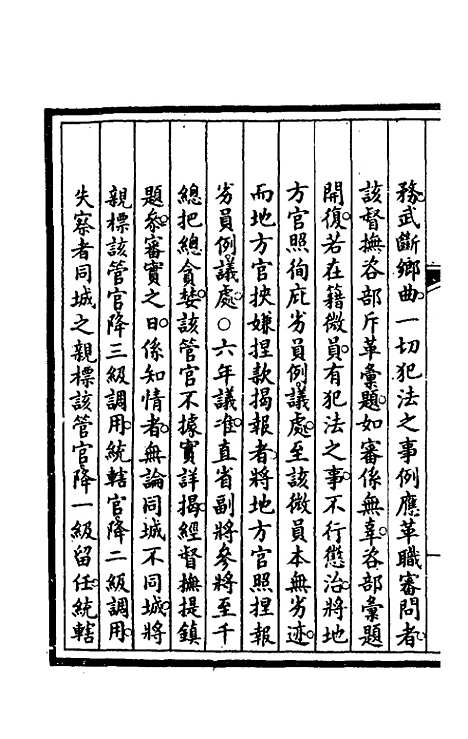 務武斷鄉曲一切犯法之事例應革職審問者
該督撫咨部斥革彙題如審係無辜咨部彙題
開復若在籍微員有犯法之事不行懲治將地
方官照徇庇劣員例議處至該微員本無劣迹
而地方官挾嫌捏款揭報者將地方官照捏報
劣員例議處○六年議准直省副將參將至千
總把總貪婪該管官不據實詳揭經督撫提鎮
題參審實之日係知情者無論同城不同城將
親標該管官降三級調用統轄官降二級調用
失察者同城之親標該管官降一級留任統轄